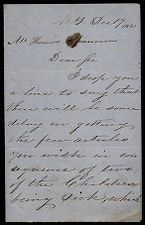 N Y Dec 17 1861
Mr Thomas
Dear Sir
I drop you
a line to say that
there will be some
delay in getting
the few articles
you wish in con
sequence of two
of the Children
being Sick, which